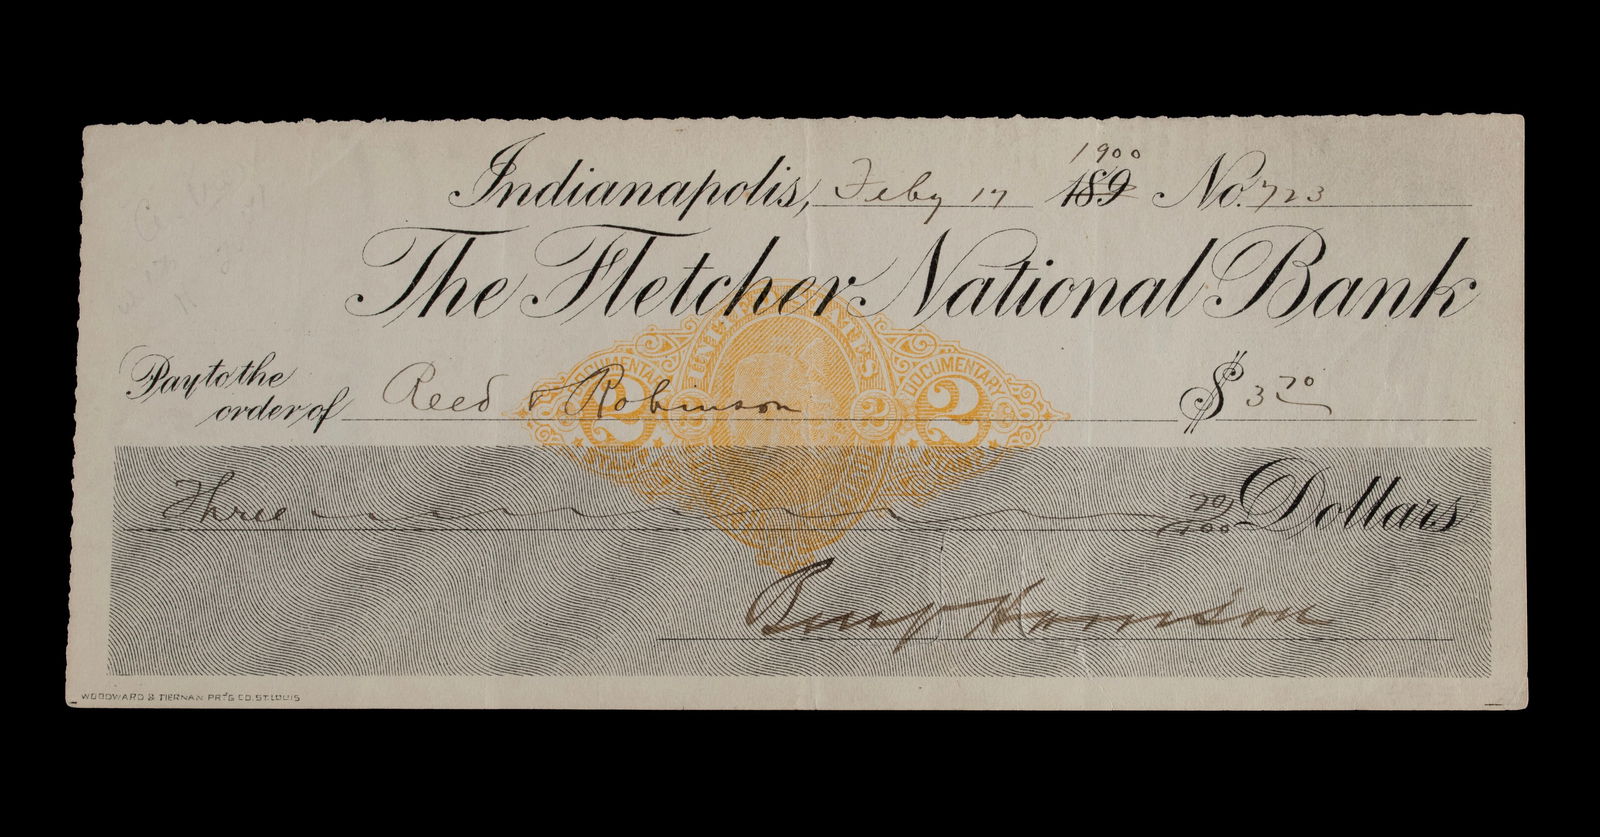 1900
Indianapolis, Feby 17 189 No. 723
The Fletcher National Bank
Pay to the
order of Reed & Robinson $ 3 70
UNITED STATES
DOCUMENTARY DOCUMENTARY
2 2 2 2
Three 70/100 Dollars
Benj Harrison
WOODWARD & TIERNAN PR'T'G CO. ST. LOUIS